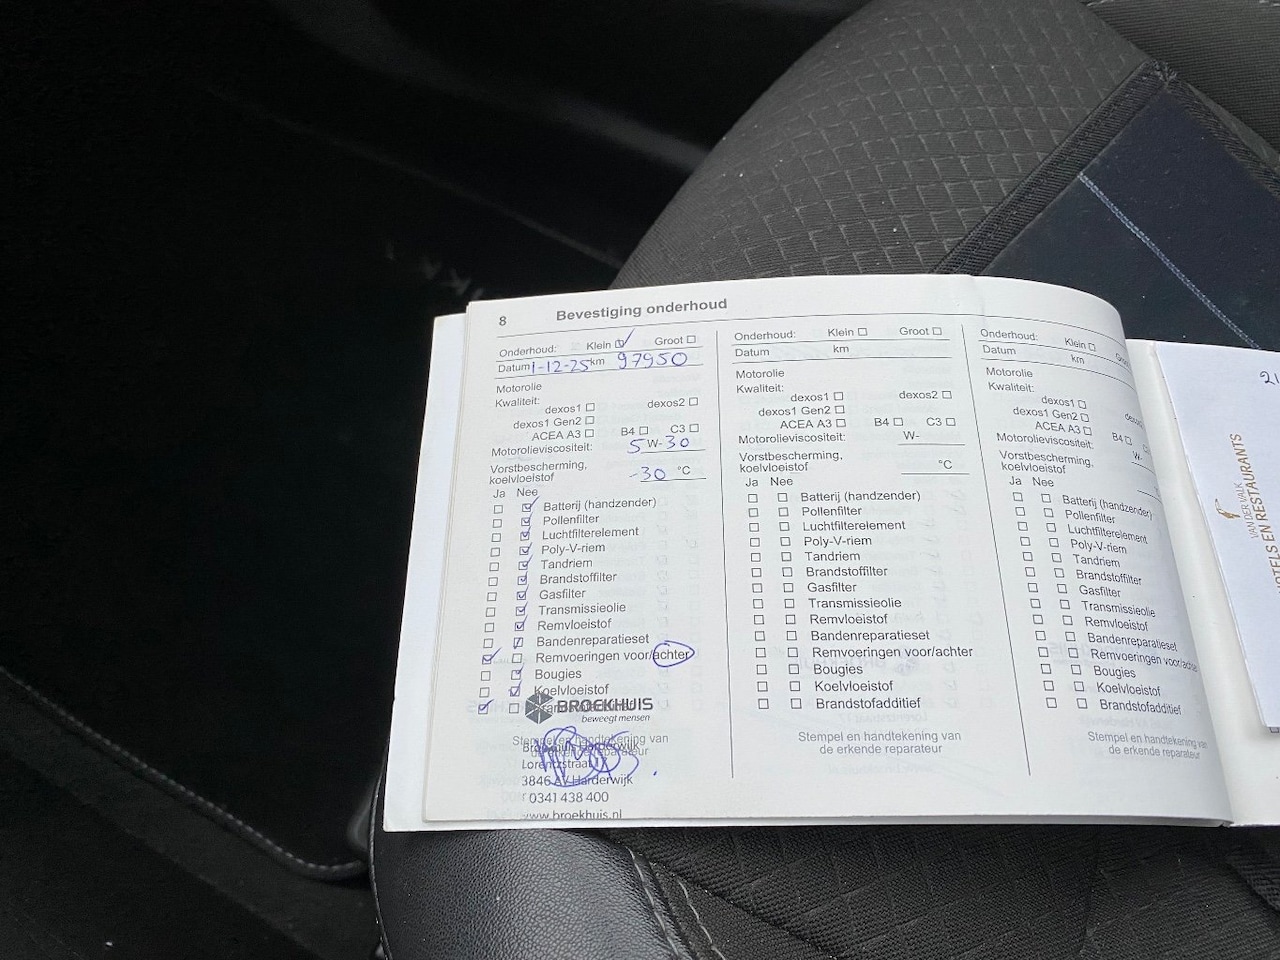 8 Bevestiging onderhoud
Onderhoud: Klein Groot
Datum 1-12-25 km 97950
Motorolie
Kwaliteit:
dexos1 dexos2
dexos1 Gen2
ACEA A3 B4 C3
Motorolieviscositeit: 5 W-30
Vorstbescherming,
koelvloeistof -30 °C
Ja Nee
Batterij (handzender)
Pollenfilter
Luchtfilterelement
Poly-V-riem
Tandriem
Brandstoffilter
Gasfilter
Transmissieolie
Remvloeistof
Bandenreparatieset
Remvoeringen voor/achter
Bougies
Koelvloeistof
BROEKHUIS
beweegt mensen
Stempel en handtekening van
de erkende reparateur
Broekhuis Harderwijk
Lorentzstraat
3846 AV Harderwijk
T 0341 438 400
www.broekhuis.nl
Onderhoud: Klein Groot
Datum km
Motorolie
Kwaliteit:
dexos1 dexos2
dexos1 Gen2
ACEA A3 B4 C3
Motorolieviscositeit: W-
Vorstbescherming,
koelvloeistof °C
Ja Nee
Batterij (handzender)
Pollenfilter
Luchtfilterelement
Poly-V-riem
Tandriem
Brandstoffilter
Gasfilter
Transmissieolie
Remvloeistof
Bandenreparatieset
Remvoeringen voor/achter
Bougies
Koelvloeistof
Brandstofadditief
Stempel en handtekening van
de erkende reparateur
Onderhoud: Klein
Datum km
Motorolie
Kwaliteit:
dexos1
dexos1 Gen2
ACEA A3 B4
Motorolieviscositeit: W-
Vorstbescherming,
koelvloeistof
Ja Nee
Batterij (handzender)
Pollenfilter
Luchtfilterelement
Poly-V-riem
Tandriem
Brandstoffilter
Gasfilter
Transmissieolie
Remvloeistof
Bandenreparatieset
Remvoeringen voor/achter
Bougies
Koelvloeistof
Brandstofadditief
Stempel en handtekening van
de erkende reparateur
21
VAN DER VALK
HOTELS EN RESTAURANTS